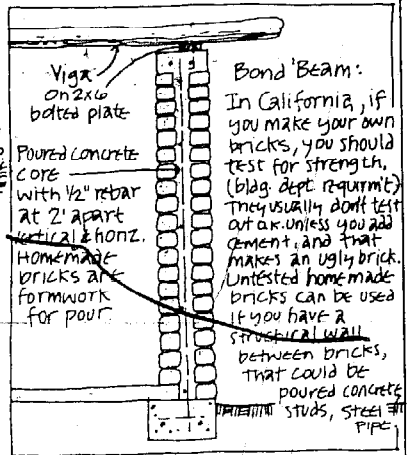 Viga
on 2x6
bolted plate
Poured concrete
core
with 1/2" rebar
at 2' apart
vertical & horiz.
Homemade
bricks are
formwork
for pour
Bond Beam:
In California, if
you make your own
bricks, you should
test for strength.
(bldg. dept. requirm't)
They usually don't test
out o.k. unless you add
cement, and that
makes an ugly brick.
Untested homemade
bricks can be used
if you have a
structural wall
between bricks,
that could be
poured concrete
studs, steel
pipe